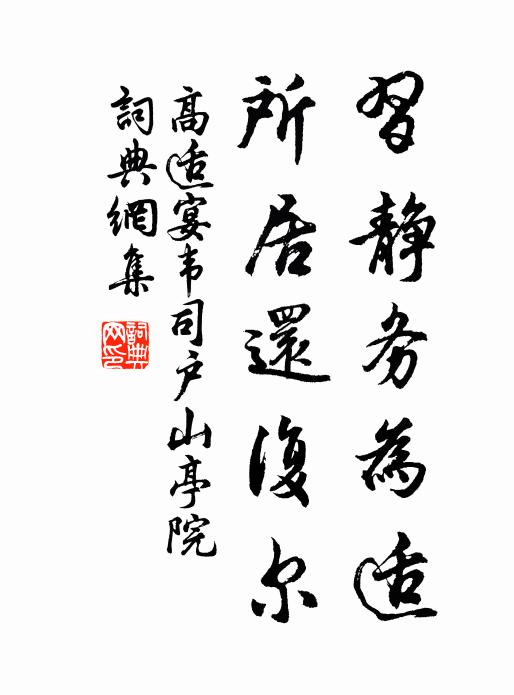 習靜务為适
所居還復尔
高适宴韦司户山亭院
詞典網集
詞典网印